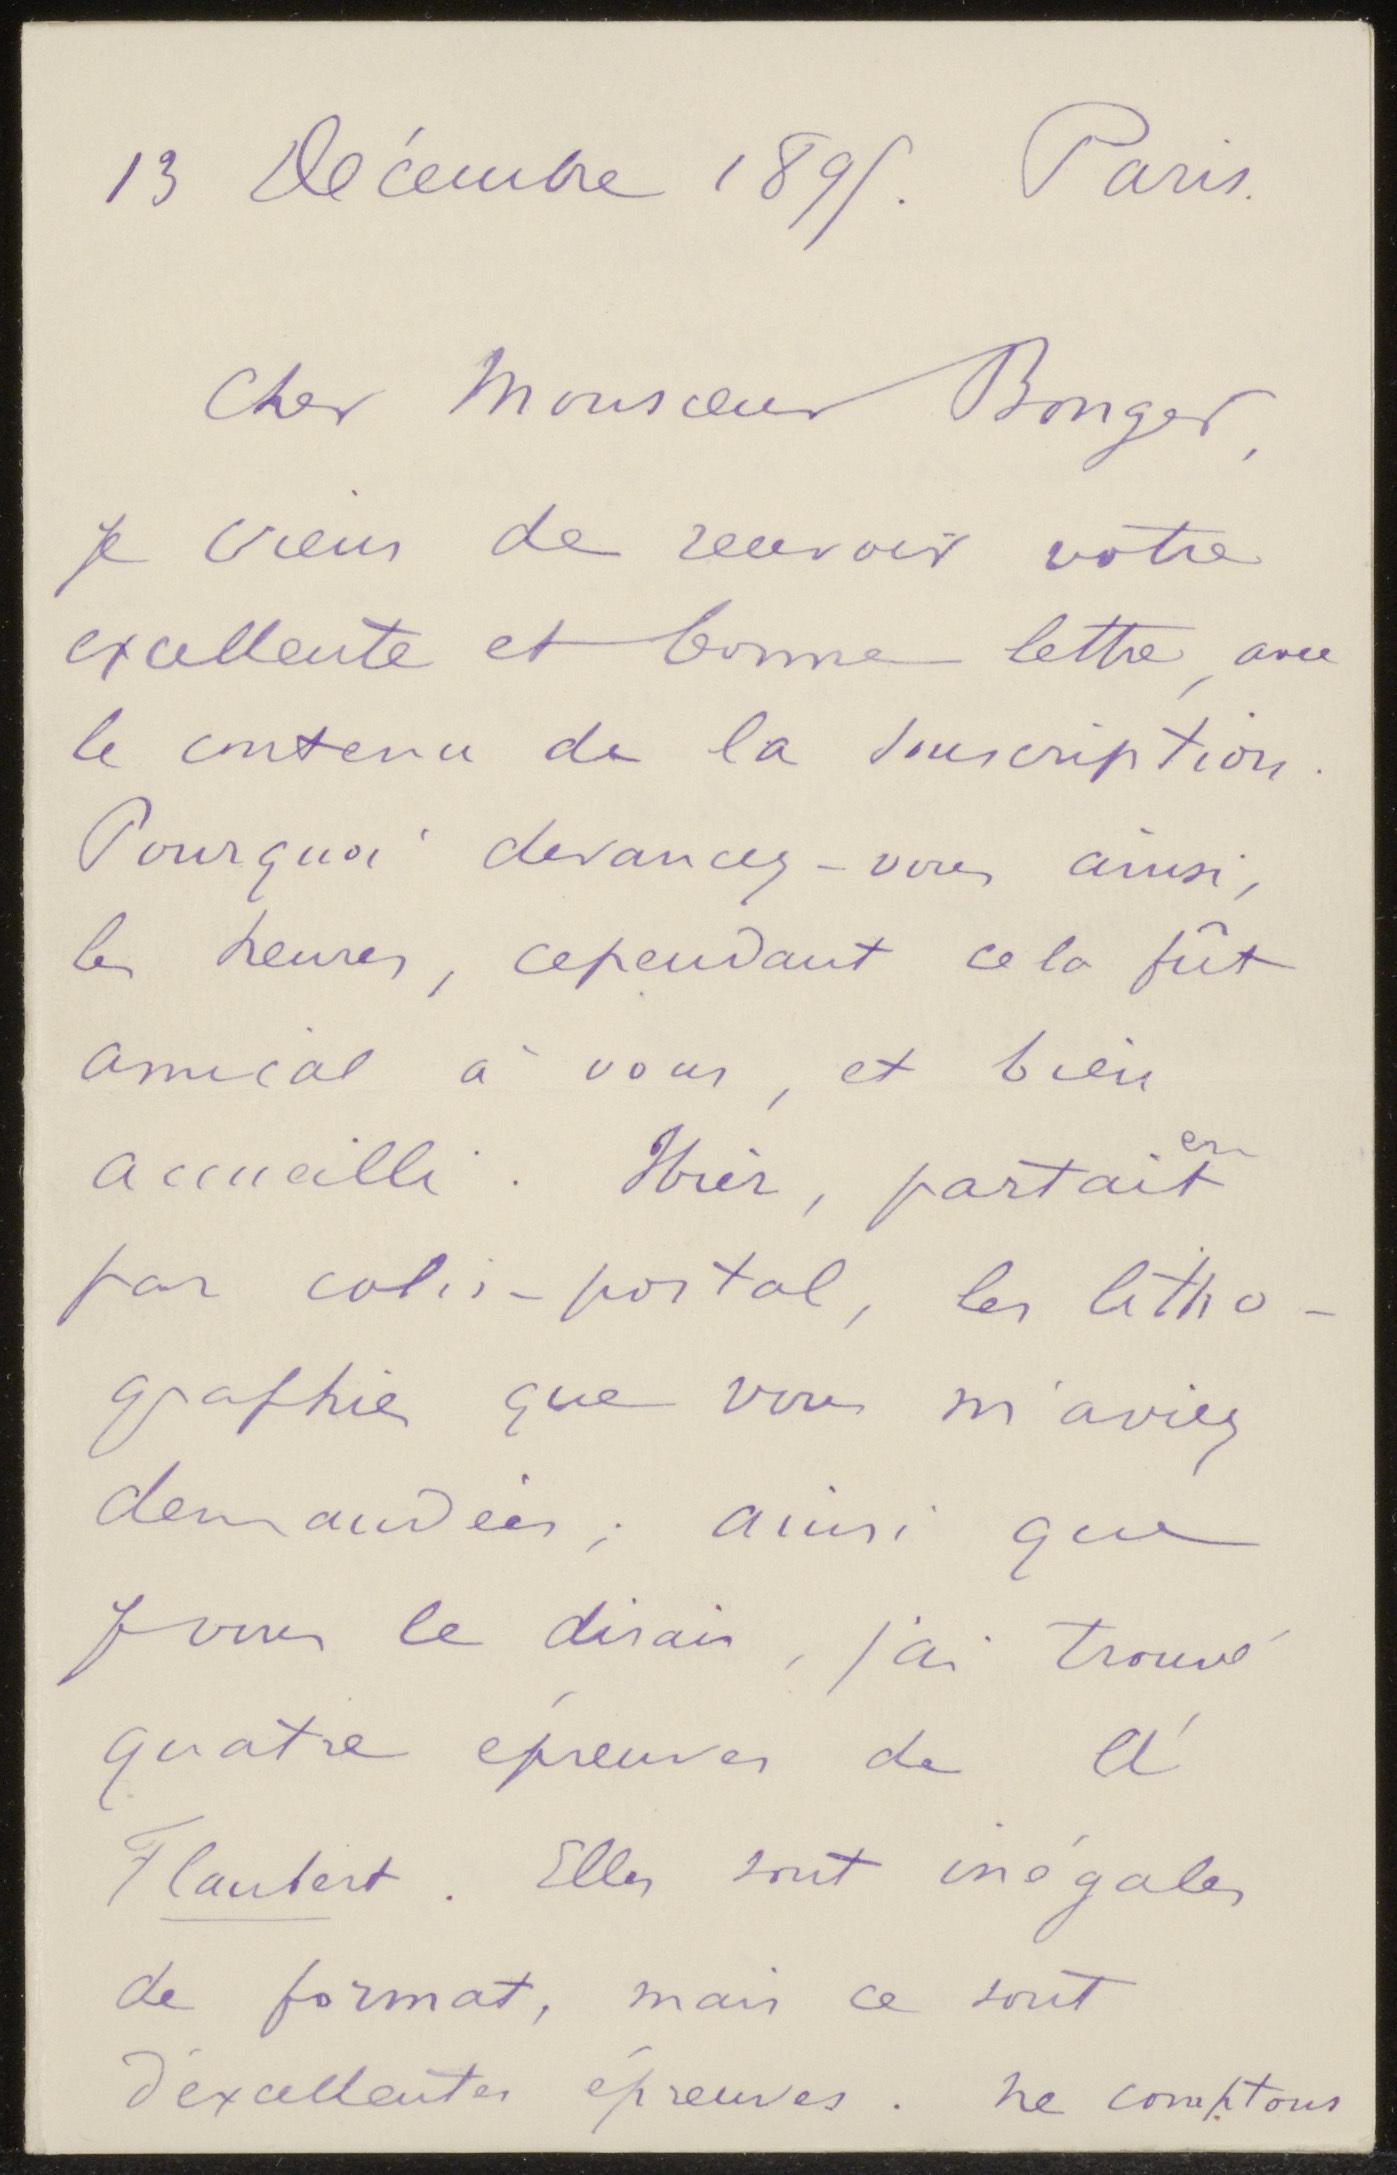 13 Décembre 1895. Paris.
Cher Monsieur Bonger,
je viens de recevoir votre
excellente et bonne lettre, avec
le contenu de la souscription.
Pourquoi devancez-vous ainsi,
les heures, cependant cela fût
amical à vous, et bien
accueilli. Hier, partait en
par colis-postal, les litho-
graphies que vous m'aviez
demandées; ainsi que
je vous le disais, j'ai trouvé
quatre épreuves de A
Flaubert. Elles sont inégales
de format, mais ce sont
d'excellentes épreuves. ne comptons